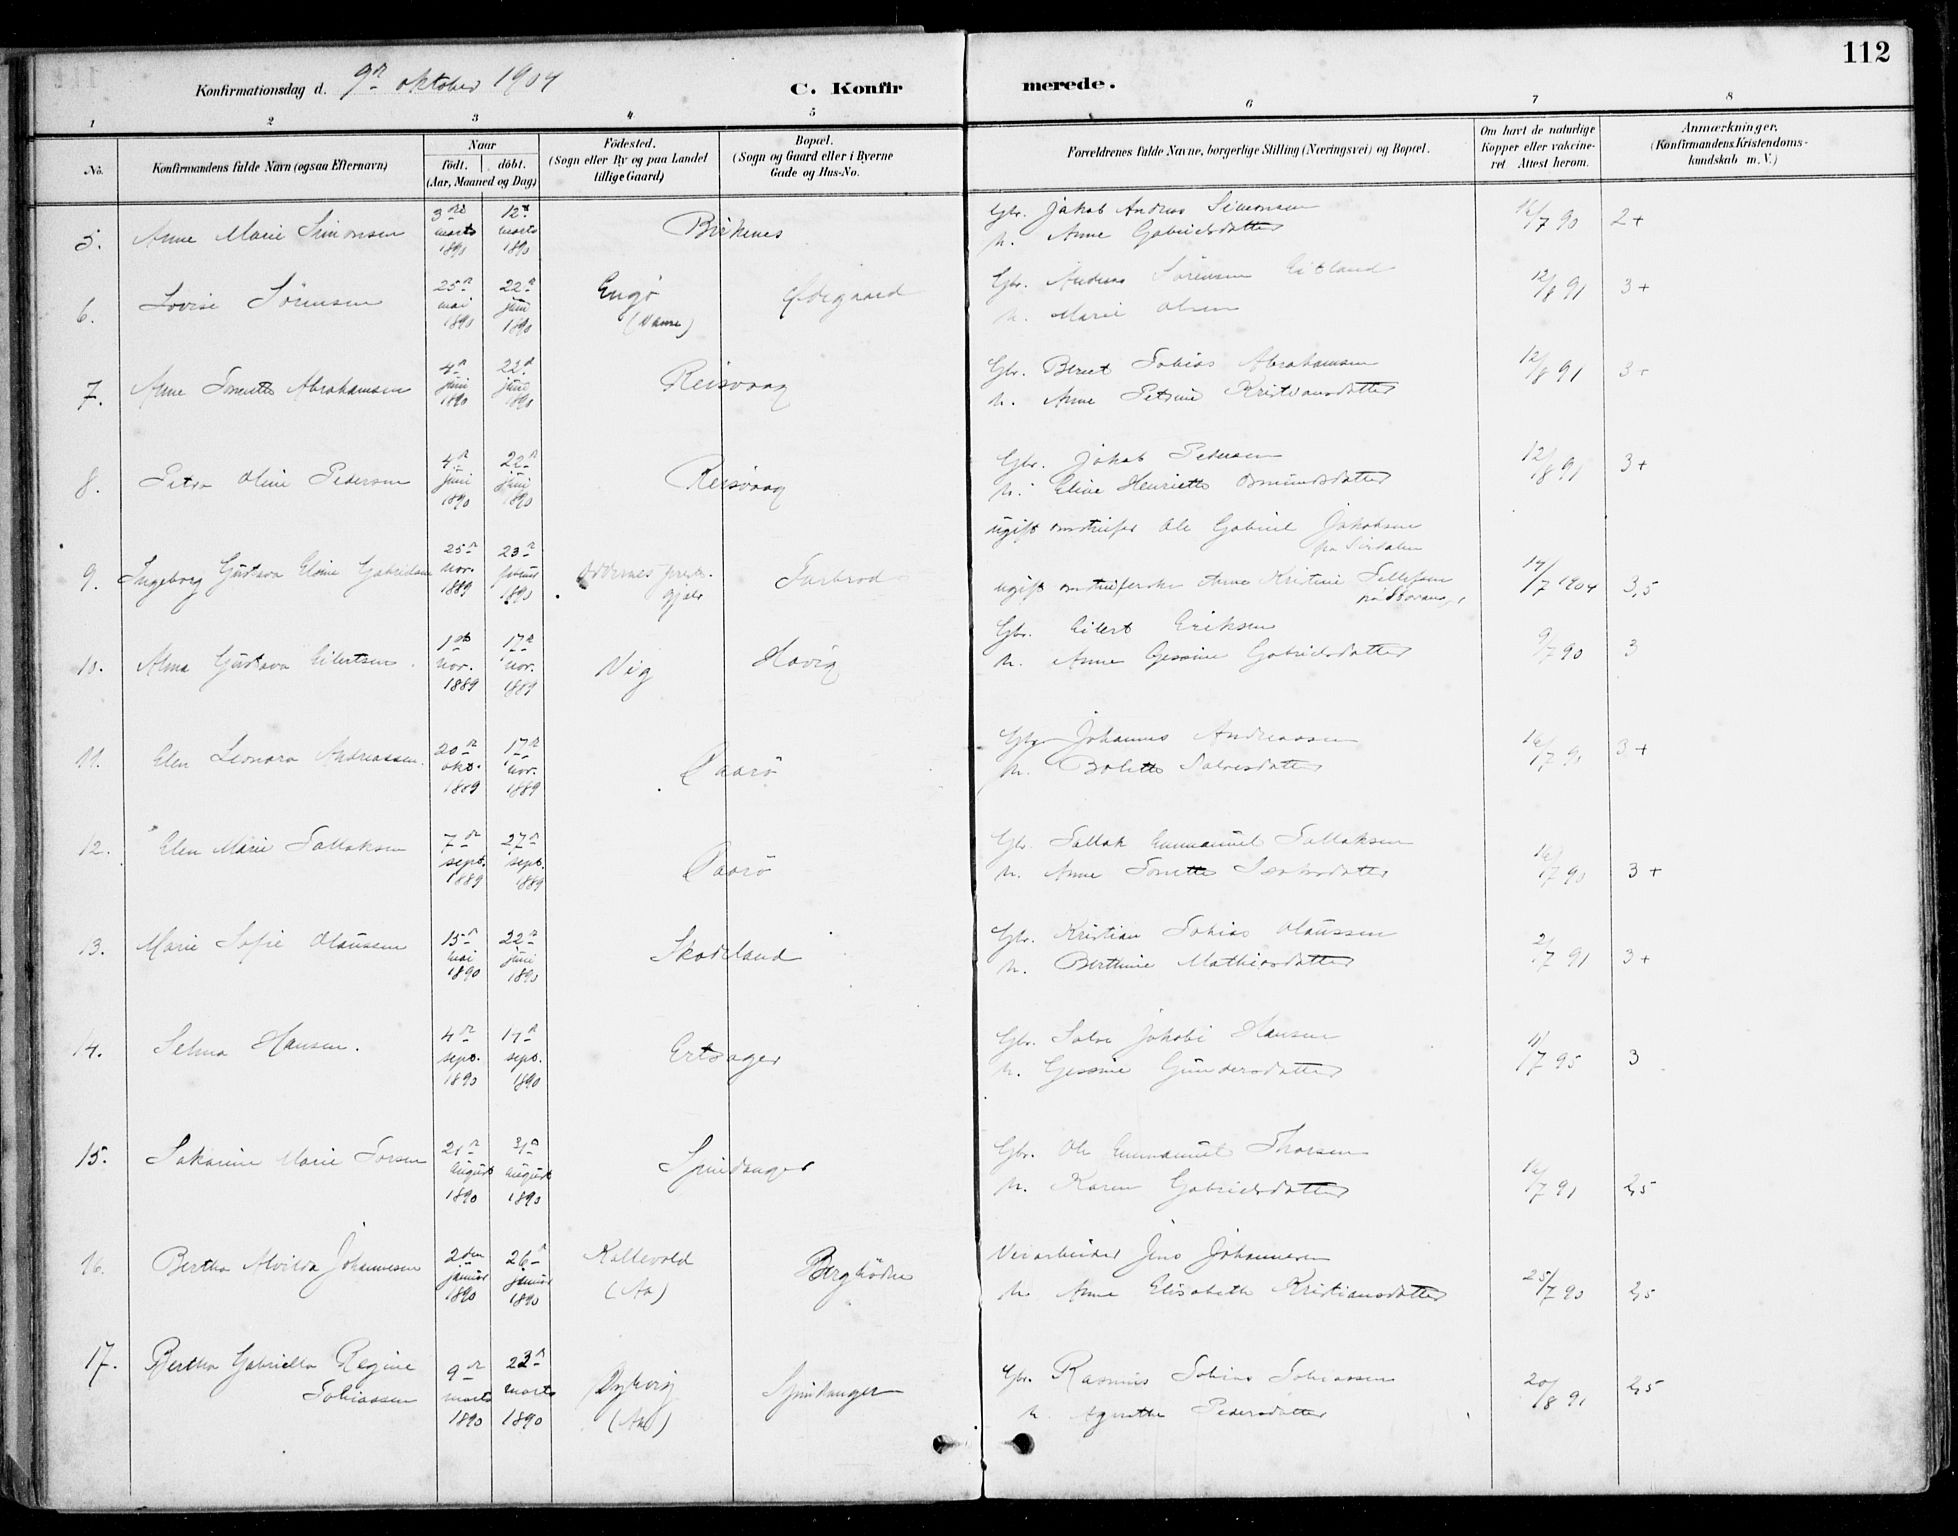 112
Konfirmationsdag d. 9de oktober 1904
C. Konfirmerede.
1 2 3 4 5 6 7 8
No.
Konfirmandens fulde Navn (ogsaa Efternavn)
Naar
født. døbt.
(Aar, Maaned og Dag)
Fødested.
(Sogn eller By og paa Landet
tillige Gaard)
Bopæl.
(Sogn og Gaard eller i Byerne
Gade og Hus-No.
Forældrenes fulde Navne, borgerlige Stilling (Næringsvei) og Bopæl.
Om havt de naturlige
Kopper eller vakcine-
ret Attest herom.
Anmærkninger,
(Konfirmandens Kristendoms-
kundskab m. V.)
5. Anne Marie Simonsen 3die marts 1890 12te marts 1890 Birkenes Gbr. Jakob Andreas Simonsen 16/7 90 2+
h. Anne Gabrielsdatter
6. Lovise Sörensen 25de mai 1890 22de juni 1890 Engö Ødegaard Gbr. Andreas Sörensen Eitland 12/8 91 3+
h. Marie Olsen
7. Anne Tonette Abrahamsen 4de juni 1890 22de juni 1890 Reisvaag Gbr. Berret Tobias Abrahamsen 12/8 91 3+
h. Anne Petrine Kristiansdatter
8. Petra Oline Pedersen 4de juni 1890 22de juni 1890 Reisvaag Gbr. Jakob Pedersen 12/8 91 3+
h. Eline Henriette Osmundsdatter
9. Ingeborg Gustava Elene Gabrielsen 25de nov. 1889 23de februar 1890 Oddernes prestegjeld Farbrod
ugift omstreifer Ole Gabriel Jakobsen
fra Sirdalen
ugift omstreiferske Anne Kristine Tellefsen 14/7 1904 3,5
10. Alma Gustava Eilertsen. 1ste nov. 1889 17de nov. 1889 Vig Haavig Gbr. Eilert Eriksen 9/7 90 3
h. Anne Gesine Gabrielsdatter
11. Elen Leonora Andreassen. 20de okt. 1889 17de nov. 1889 Gaarö Gbr. Johannes Andreassen 16/7 90 3+
h. Bolette Salvesdatter
12. Elen Marie Tallaksen 7de sept. 1889 27de sept. 1889 Gaarö Gbr. Tallak Emmanuel Tallaksen 16/7 90 3+
h. Anne Tonette
13. Marie Sofie Olaussen 15de mai 1890 22de juni 1890 Skodeland Gbr. Kristian Tobias Olaussen 2/7 91 3+
h. Berthine Mathiasdatter
14. Selma Hansen. 4de sept. 1890 17de sept. 1890 Ertzager Gbr. Salve Jakobi Hansen 11/7 95 3
h. Gesine Gundersdatter
15. Sakarine Marie Torsen 21de august 1890 31de august 1890 Spindanger Gbr. Ole Emmanuel Thorsen 16/7 91 2,5
h. Karen Gabrielsdatter
16. Bertha Alvilda Johannesen 2den januar 1890 26de januar 1890 Kallevold (Aa) Veiarbeider Jens Johannesen 25/7 90 2,5
h. Anne Elisabeth Kristiansdatter
17. Bertha Gabriella Regine 9de marts 1890 23de marts 1890 (Aa) Spindanger Gbr. Rasmus Tobias Tobiassen 20/8 91 2,5
Tobiassen h. Agnethe Pedersdatter